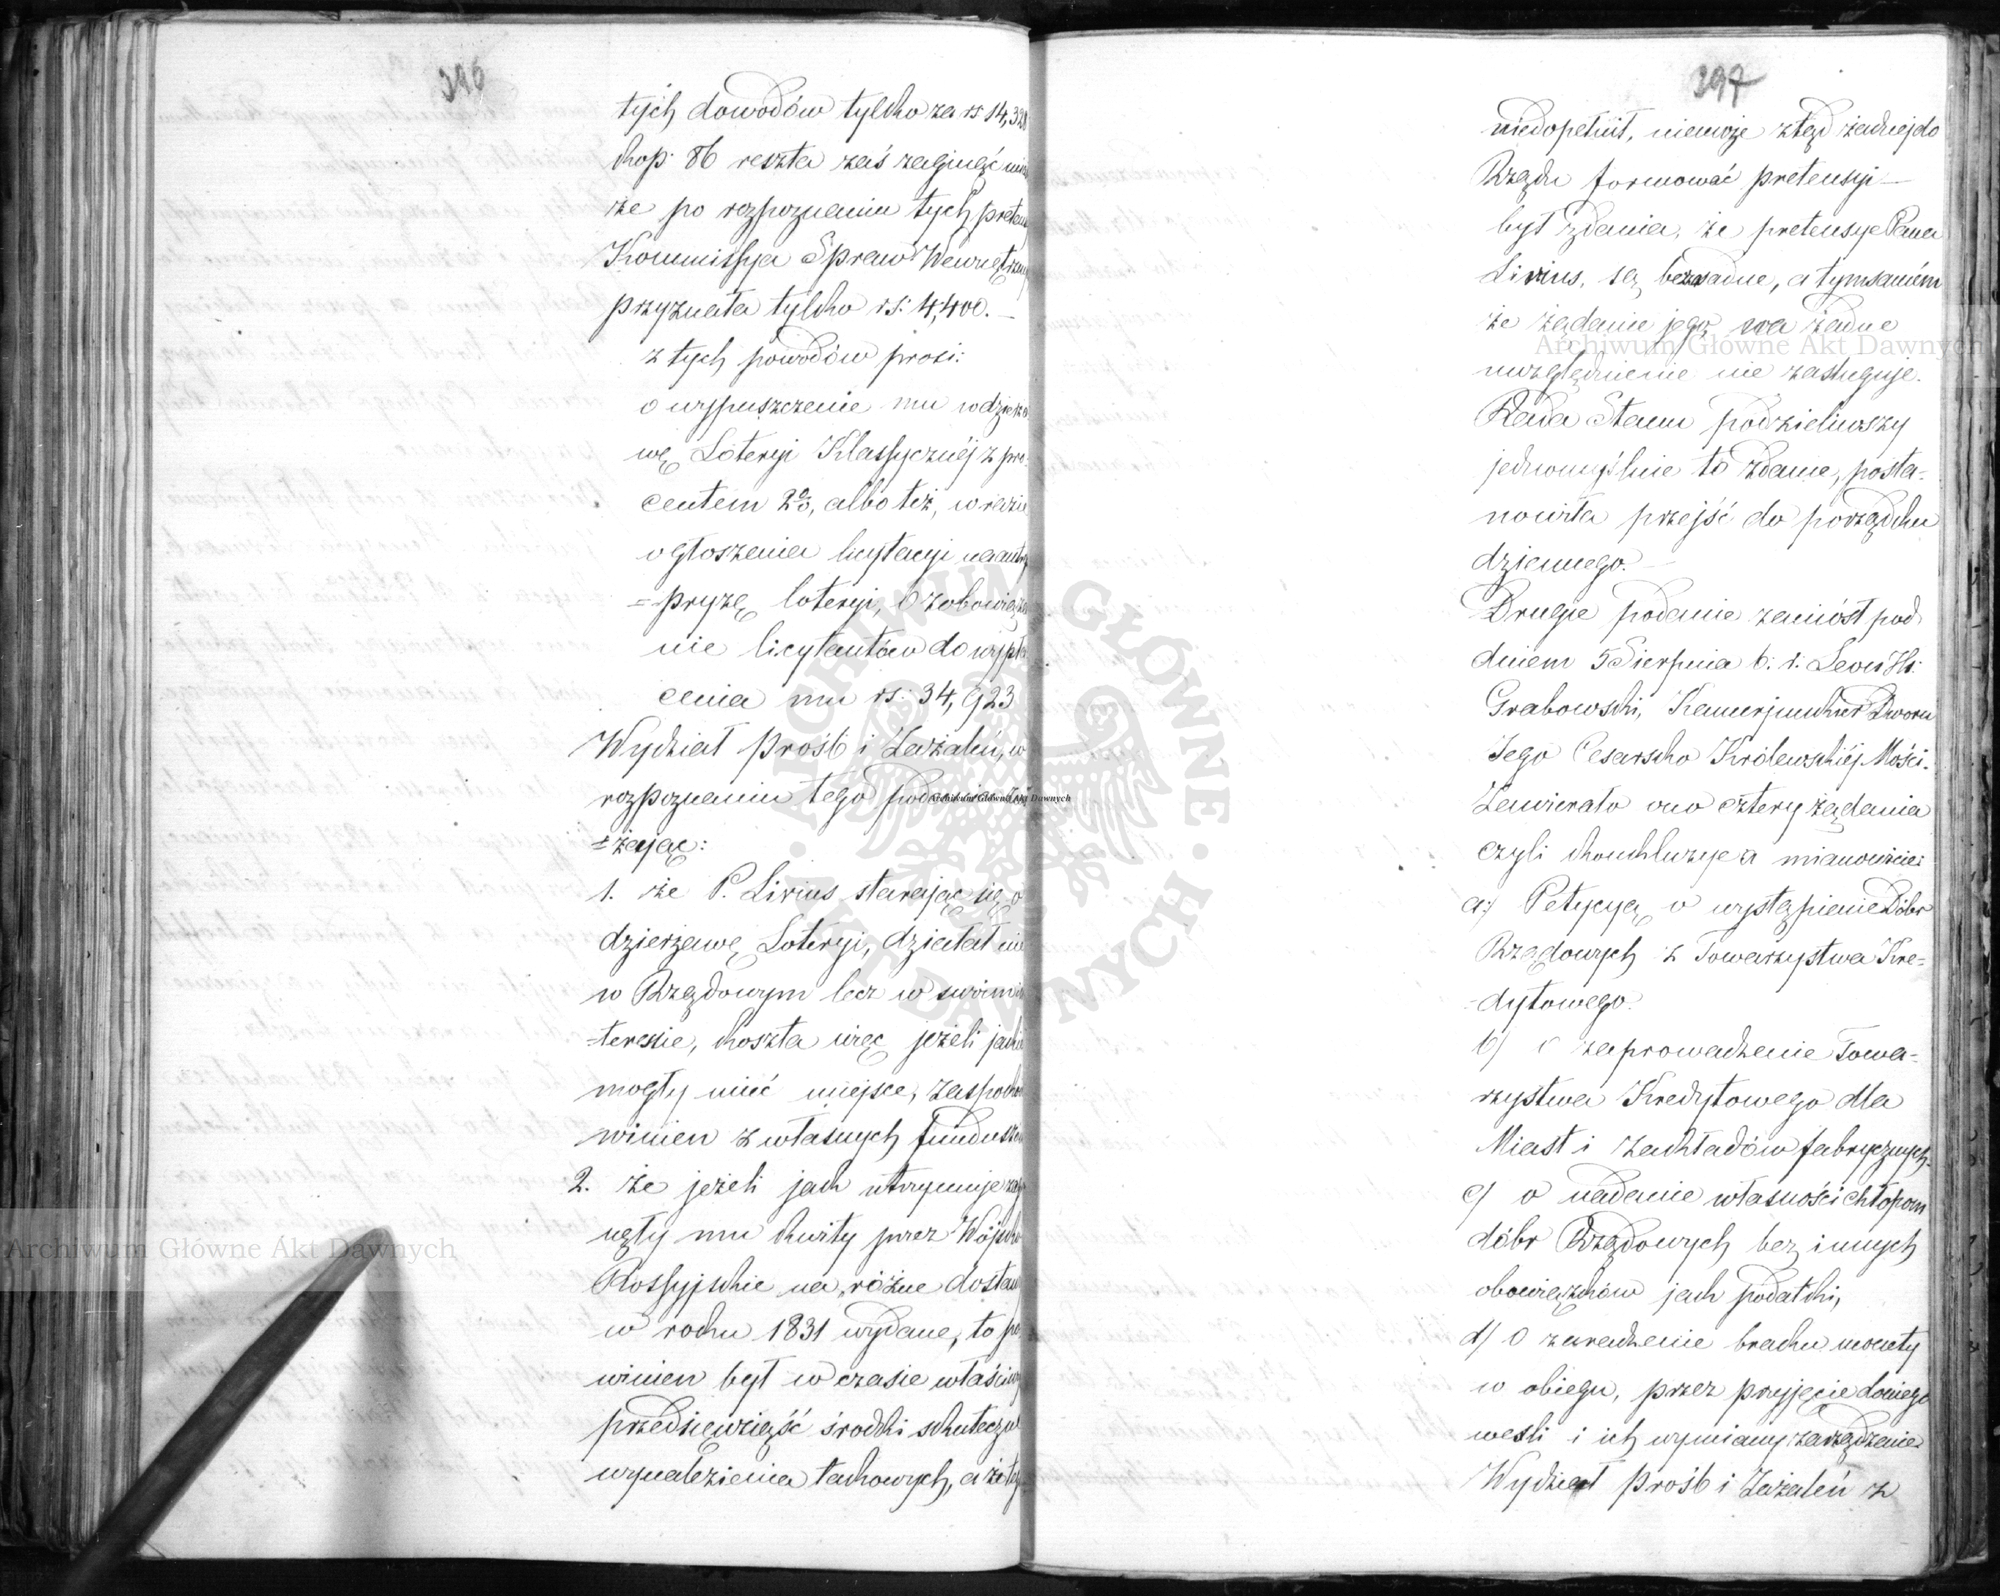 396
tych dowodów tylko za rs 14,328
kop: 86 reszta zaś zaginąć
że po rozpoznaniu tych
Kommissya Spraw
przyznała tylko rs: 4,400. —
z tych powodów prosi:
o wypuszczenie mu w
wę Loteryi Klassycznéj z
centem 2%, albo też, w razie
ogłoszenia licytacyi na
=pryzę loteryi, o
nie licytantów do
cenia mu rs: 34,923
Wydział Próśb i Zażaleń, w
rozpoznaniu tego podania
=żając:
1. że P. Livius starając się o
dzierżawę Loteryi, działał nie
w Rządowym lecz w swoim
=teressie, koszta więc jeżeli
mogły mieć miejsce,
winien z własnych
2. że jeżeli jak utrzymuje
nęły mu kwity przez
Rossyjskie na różne
w roku 1831 wydane, to
winien był w czasie
przedsięwziąść środki
wynalezienia takowych, a że
397
niedopełnił, niemoże ztąd żadnej do
Rządu formować pretensyi —
był zdania, że pretensye Pana
Livius, są bezzasadne, a tymsamém
że żądanie jego na żadne
uwzględnienie nie zasługuje.
Rada Stanu podzieliwszy
jednomyślnie to zdanie, posta-
nowiła przejść do porządku
dziennego. —
Drugie podanie zaniósł pod
dniem 5 Sierpnia b: r: Leon Hr:
Grabowski, Kamerjunkier Dworu
Jego Cesarsko Królewskiéj Mości.
Zawierało ono cztery żądania
czyli konkluzye a mianowicie:
a) Petycyą o wystąpienie Dóbr
Rządowych z Towarzystwa Kre=
-dytowego.
b) o zaprowadzenie Towa-
rzystwa Kredytowego dla
Miast i Zakładów fabrycznych.
c) o nadanie własności chłopom
dóbr Rządowych bez innych
obowiązków jak podatki,
d) o zaradzenie braku monety
w obiegu, przez przyjęcie do niego
weksli i ich wymiany zarządzenie
Wydział Próśb i Zażaleń z
Archiwum Główne Akt Dawnych
Archiwum Główne Akt Dawnych
Archiwum Główne Akt Dawnych
ARCHIWUM GŁÓWNE
AKT DAWNYCH